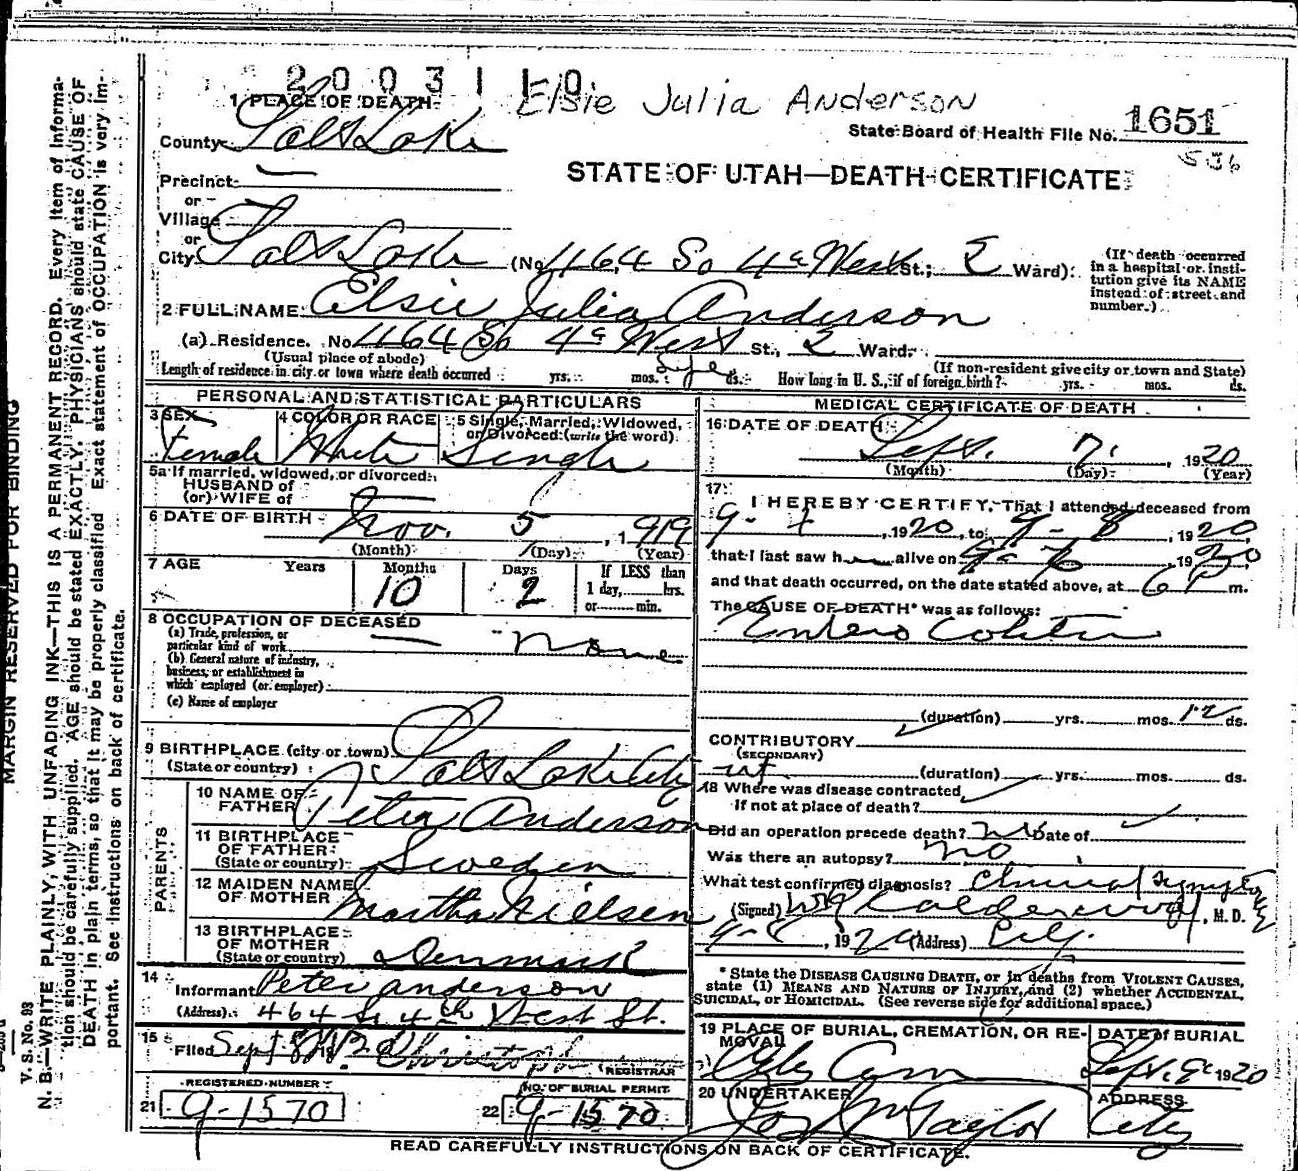 2003110
Elsie Julia Anderson
1 PLACE OF DEATH
State Board of Health File No. 1651
536
County Salt Lake
STATE OF UTAH—DEATH CERTIFICATE
Precinct —
or
Village
or
City Salt Lake (No. 1164 So 4th West St.; 2 Ward)
(If death occurred in a hospital or institution give its NAME instead of street and number.)
2 FULL NAME Elsie Julia Anderson
(a) Residence. No. 1164 So 4th West St., 2 Ward.
(Usual place of abode) (If non-resident give city or town and State)
Length of residence in city or town where death occurred yrs. mos. Life ds. How long in U. S., if of foreign birth? yrs. mos. ds.
PERSONAL AND STATISTICAL PARTICULARS
3 SEX Female
4 COLOR OR RACE White
5 Single, Married, Widowed, or Divorced (write the word) Single
5a If married, widowed, or divorced
HUSBAND of
(or) WIFE of —
6 DATE OF BIRTH Nov. 5, 1919
(Month) (Day) (Year)
7 AGE Years Months 10 Days 2 If LESS than 1 day, hrs. or min.
8 OCCUPATION OF DECEASED
(a) Trade, profession, or particular kind of work — none
(b) General nature of industry, business, or establishment in which employed (or employer)
(c) Name of employer
9 BIRTHPLACE (city or town) Salt Lake City
(State or country) ut
PARENTS
10 NAME OF FATHER Peter Anderson
11 BIRTHPLACE OF FATHER (State or country) Sweden
12 MAIDEN NAME OF MOTHER Martha Nielsen
13 BIRTHPLACE OF MOTHER (State or country) Denmark
14 Informant Peter Anderson
(Address) 464 So 4th West St.
15 Filed Sept 8
REGISTRAR
REGISTERED NUMBER
21 9-1570
NO. OF BURIAL PERMIT
22 9-1570
MEDICAL CERTIFICATE OF DEATH
16 DATE OF DEATH Sept. 7, 1920
(Month) (Day) (Year)
17 I HEREBY CERTIFY, That I attended deceased from
, 1920, to 9-8, 1920,
that I last saw h alive on 1920
and that death occurred, on the date stated above, at 6 P m.
The CAUSE OF DEATH* was as follows:
Entero Colitis
(duration) yrs. mos. 12 ds.
CONTRIBUTORY
(SECONDARY)
(duration) yrs. mos. ds.
18 Where was disease contracted
if not at place of death?
Did an operation precede death? no Date of
Was there an autopsy? no
What test confirmed diagnosis? Clinical Symptoms
(Signed) Calderwood, M. D.
9-8, 1920 (Address) City
* State the DISEASE CAUSING DEATH, or in deaths from VIOLENT CAUSES, state (1) MEANS AND NATURE OF INJURY, and (2) whether ACCIDENTAL, SUICIDAL, or HOMICIDAL. (See reverse side for additional space.)
19 PLACE OF BURIAL, CREMATION, OR REMOVAL City Cem
DATE of BURIAL Sept. 9 1920
20 UNDERTAKER Jos Wm Taylor
ADDRESS City
READ CAREFULLY INSTRUCTIONS ON BACK OF CERTIFICATE.
MARGIN RESERVED FOR BINDING
V. S. No. 93
N. B.—WRITE PLAINLY, WITH UNFADING INK—THIS IS A PERMANENT RECORD. Every item of information should be carefully supplied. AGE should be stated EXACTLY. PHYSICIANS should state CAUSE OF DEATH in plain terms, so that it may be properly classified. Exact statement of OCCUPATION is very important. See instructions on back of certificate.